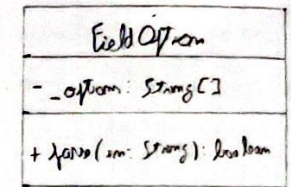 FieldOption
- _options: String[]
+ parse(in: String): boolean